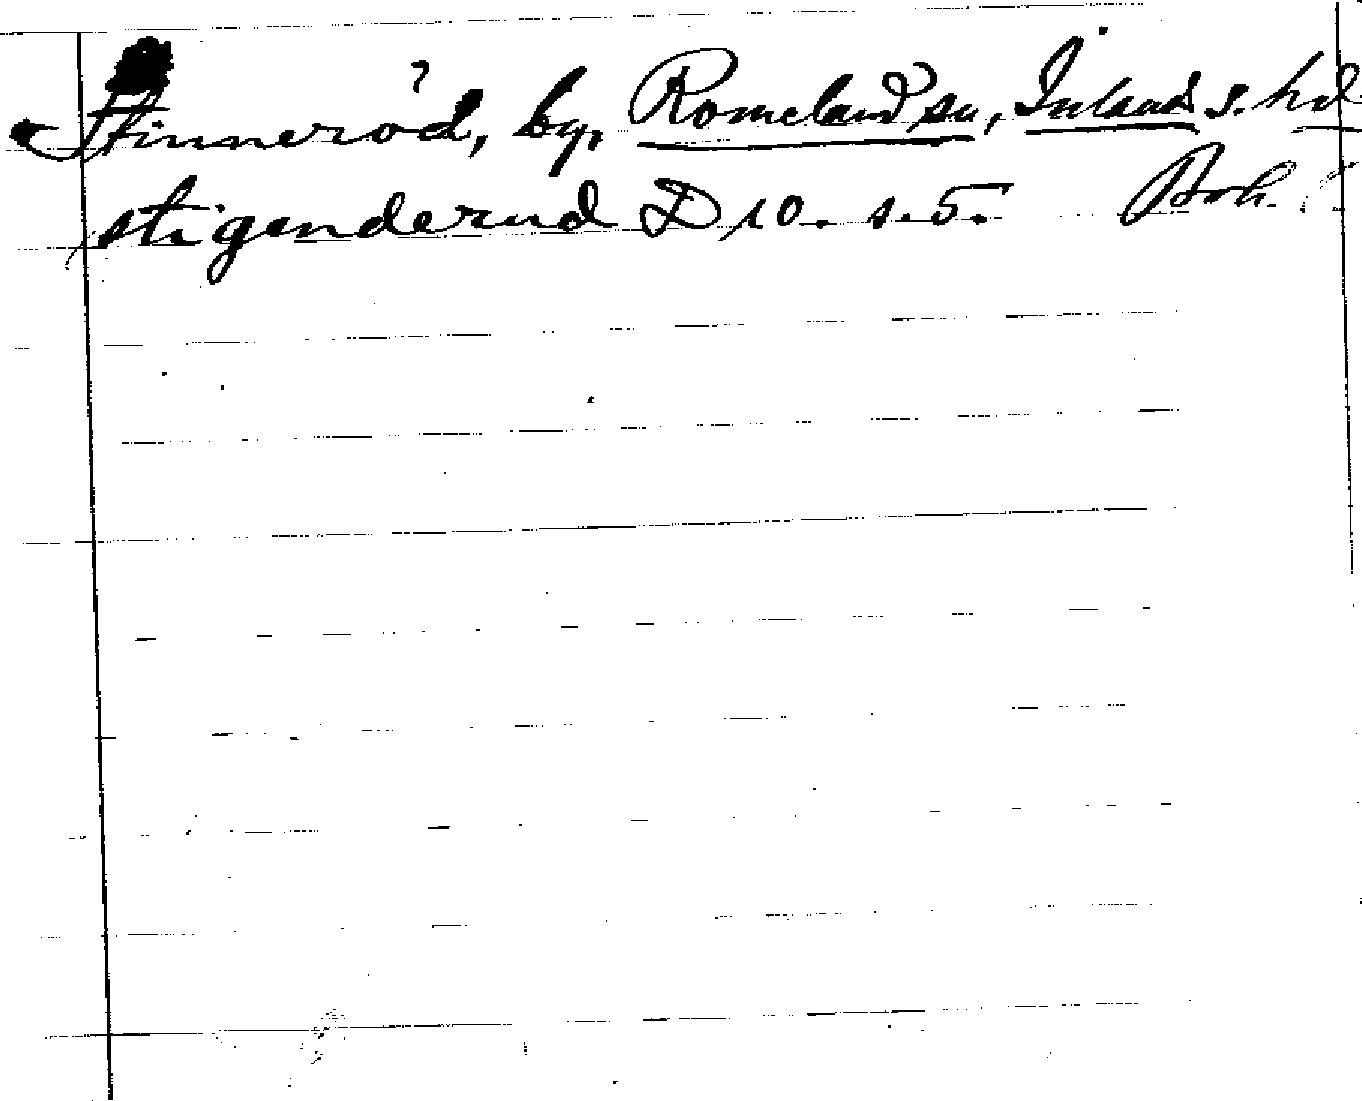 Stinneröd, by, Romeland sn, Inlands s. hd
stigenderud D 10. s. 5. Boh.